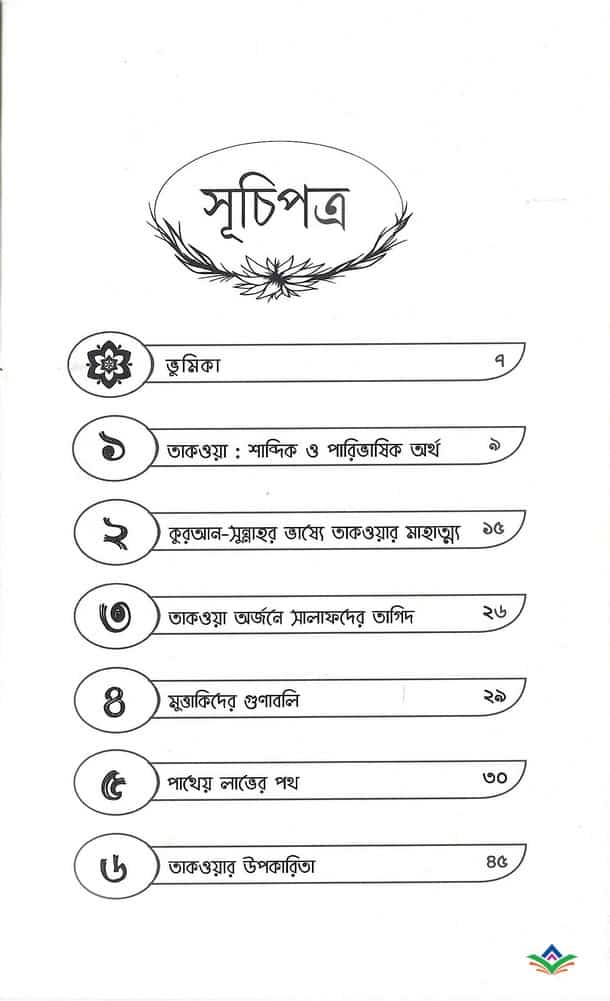 সূচিপত্র
ভূমিকা ৭
১ তাকওয়া : শাব্দিক ও পারিভাষিক অর্থ ৯
২ কুরআন-সুন্নাহর ভাষ্যে তাকওয়ার মাহাত্ম্য ১৫
৩ তাকওয়া অর্জনে সালাফদের তাগিদ ২৬
৪ মুত্তাকিদের গুণাবলি ২৯
৫ পাথেয় লাভের পথ ৩০
৬ তাকওয়ার উপকারিতা ৪৫